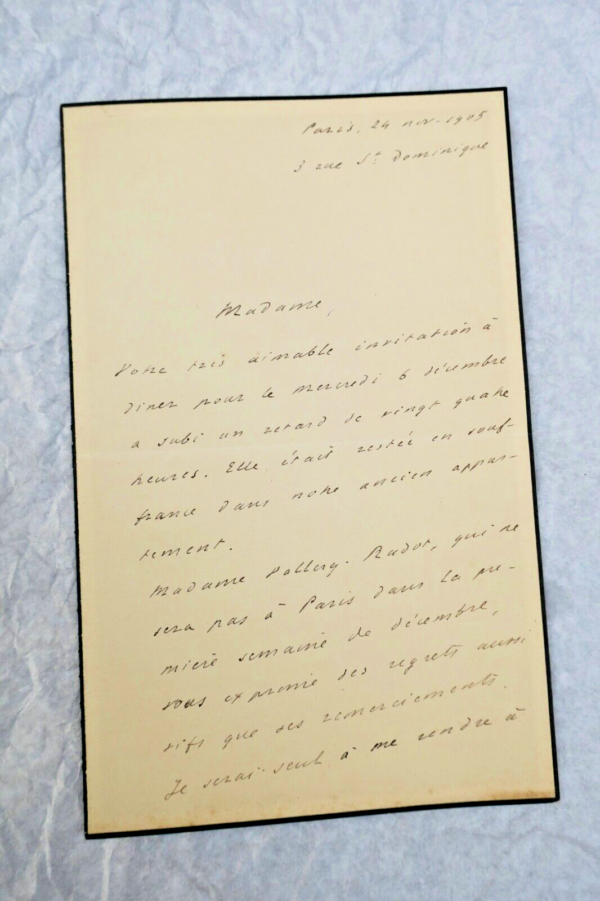 Paris, 24 nov. 1905
3 rue St Dominique
Madame,
Votre très aimable invitation à
diner pour le mercredi 6 décembre
a subi un retard de vingt quatre
heures. Elle était restée en souf-
france dans notre ancien appar-
tement.
Madame Vallery-Radot, qui ne
sera pas à Paris dans la pre-
mière semaine de décembre,
vous exprime ses regrets aussi
vifs que ses remerciements.
Je serai seul à me rendre à